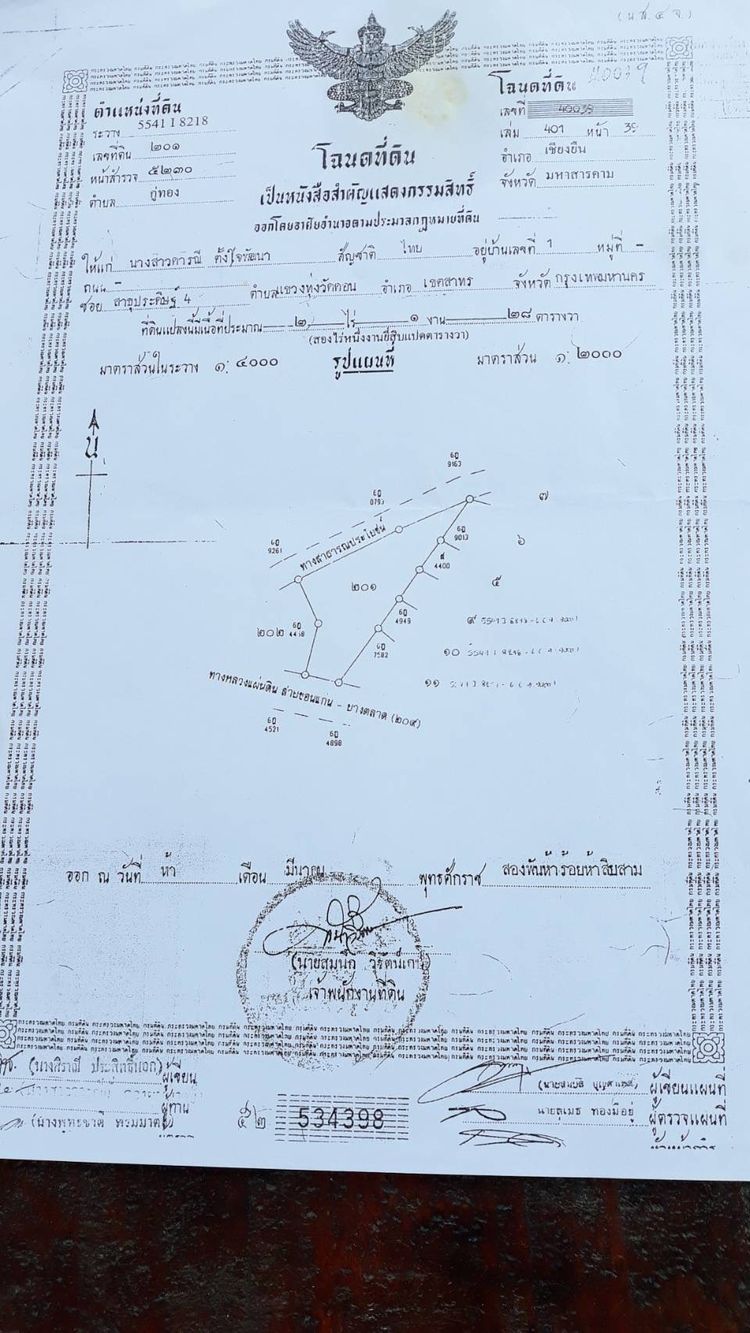 (น.ส. ๔ จ.)
ตำแหน่งที่ดิน
ระวาง 5541 I 8218
เลขที่ดิน ๒๐๑
หน้าสำรวจ ๕๒๓๐
ตำบล กู่ทอง
โฉนดที่ดิน
40039
เลขที่ 40039
เล่ม 401 หน้า 39
อำเภอ เชียงยืน
จังหวัด มหาสารคาม
โฉนดที่ดิน
เป็นหนังสือสำคัญแสดงกรรมสิทธิ์
ออกโดยอาศัยอำนาจตามประมวลกฎหมายที่ดิน
ให้แก่ นางสาวดารณี ตั้งใจพัฒนา สัญชาติ ไทย อยู่บ้านเลขที่ 1 หมู่ที่ -
ถนน -
ซอย สาธุประดิษฐ์ 4 ตำบล แขวงทุ่งวัดดอน อำเภอ เขตสาทร จังหวัด กรุงเทพมหานคร
ที่ดินแปลงนี้มีเนื้อที่ประมาณ ๒ ไร่ ๑ งาน ๒๘ ตารางวา
(สองไร่หนึ่งงานยี่สิบแปดตารางวา)
มาตราส่วนในระวาง ๑: ๔๐๐๐ รูปแผนที่ มาตราส่วน ๑: ๒๐๐๐
น
6ฏ
9163
6ฏ
0793
๗
6ฏ
9261
ทางสาธารณประโยชน์
6ฏ
9013
๖
4400
๒๐๑
๕
6ฏ
4949
๒๐๒
6ฏ
4458
6ฏ
7582
๙
๑๐
๑๑
ทางหลวงแผ่นดิน สายขอนแก่น - ยางตลาด (๒๐๙)
6ฏ
4521
6ฏ
4898
ออก ณ วันที่ ห้า เดือน มีนาคม พุทธศักราช สองพันห้าร้อยห้าสิบสาม
(นายสุมนัก วิรัตน์เกษ)
เจ้าพนักงานที่ดิน
ผู้เขียน
ผู้ทาน
ผู้เขียนแผนที่
นายสุเมธ ทองมีอยู่ ผู้ตรวจแผนที่
๕๒ 534398